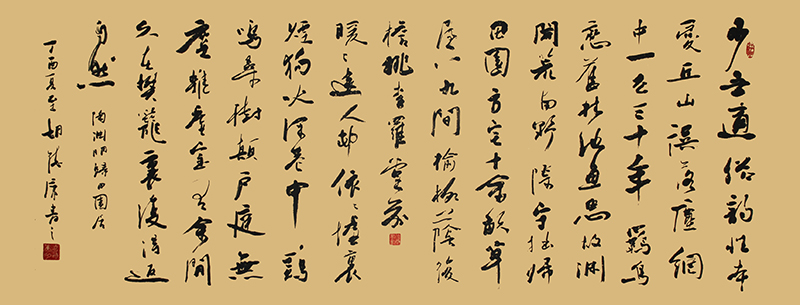 少无適俗韵性本
愛丘山誤落塵網
中一去三十年羈鳥
戀舊林池魚思故渊
開荒南野際守拙歸
田園方宅十余畝草
屋八九間榆柳蔭後
檐桃李羅堂前
暧〻遠人邨依〻墟裏
煙狗吠深巷中鷄
鳴桑樹顛户庭無
塵雜虚室有余閒
久在樊籠裏復得返
自然 陶渊明歸田園居
丁酉夏至 胡